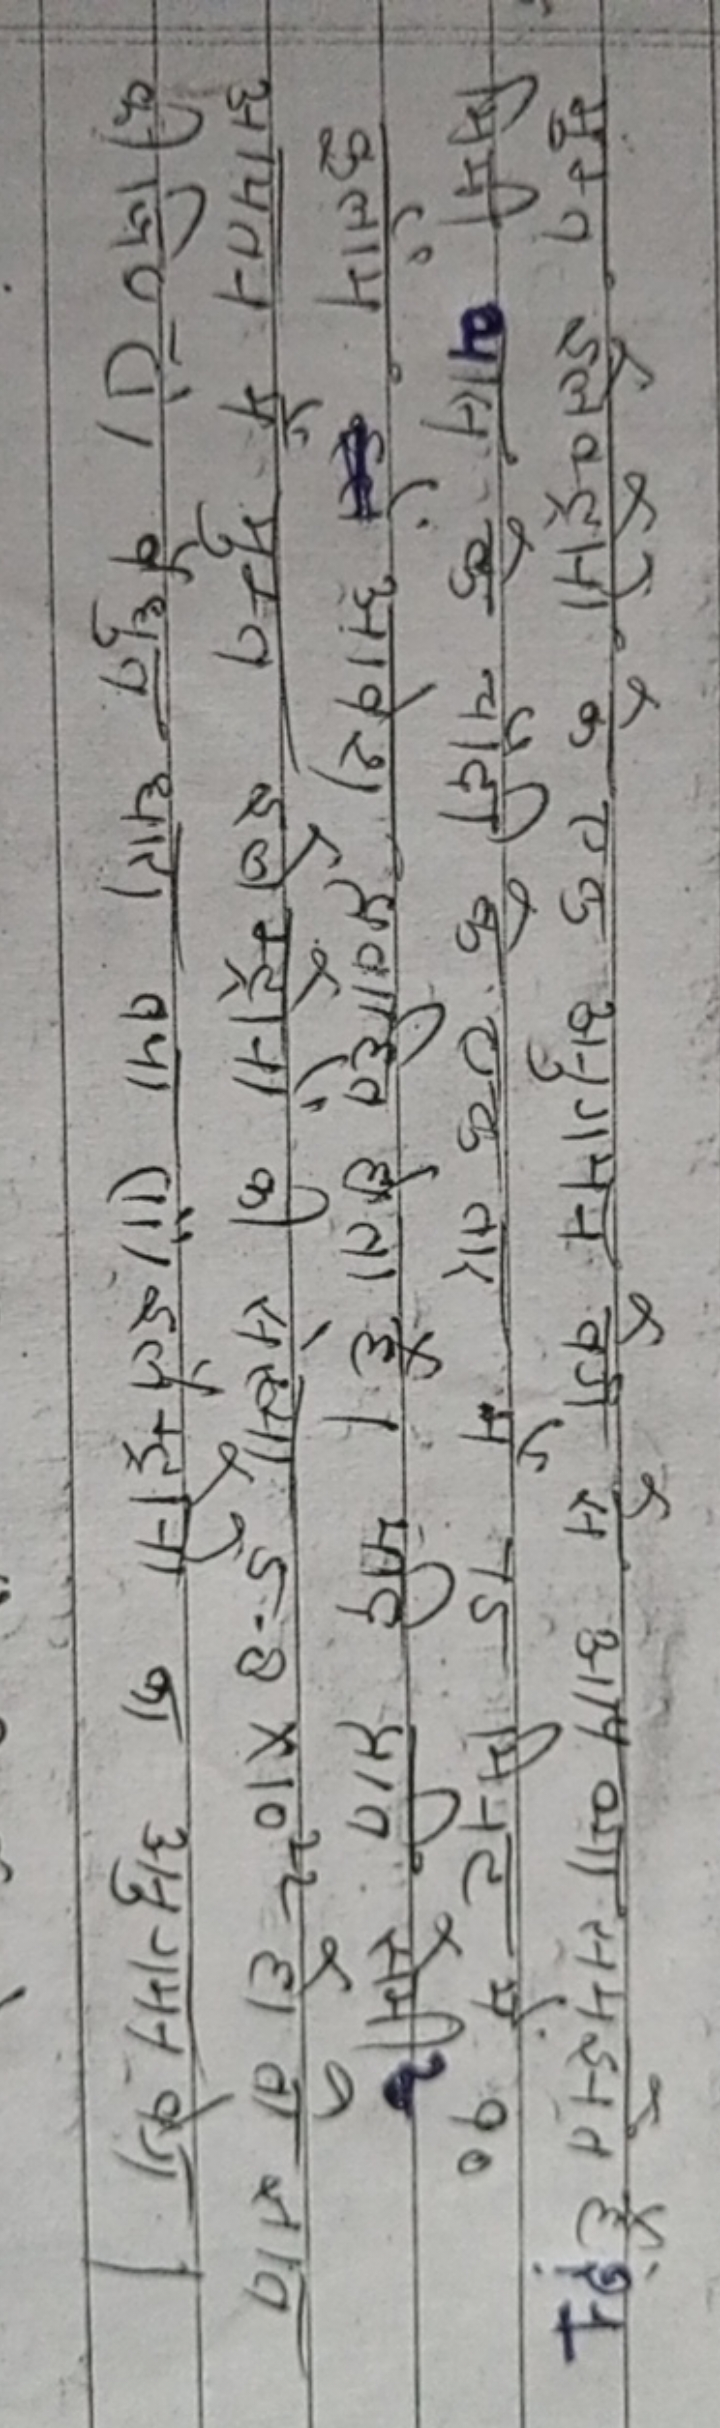 मुक्त इलेक्ट्रोनों के एक अनुगमन वेग से आप क्या समझते हैं? 1
मिमी व्यास के चाँदी के एक तार में 75 मिनट में 90
कूलॉम आवेश प्रवाहित होता है। यदि प्रति सेमी
आयतन में मुक्त इलेक्ट्रॉनों की संख्या 5.8 x10²² हो तो ज्ञात
कीजिए (i) वैद्युत धारा तथा (ii) इलेक्ट्रॉनों का अनुगमन वेग।